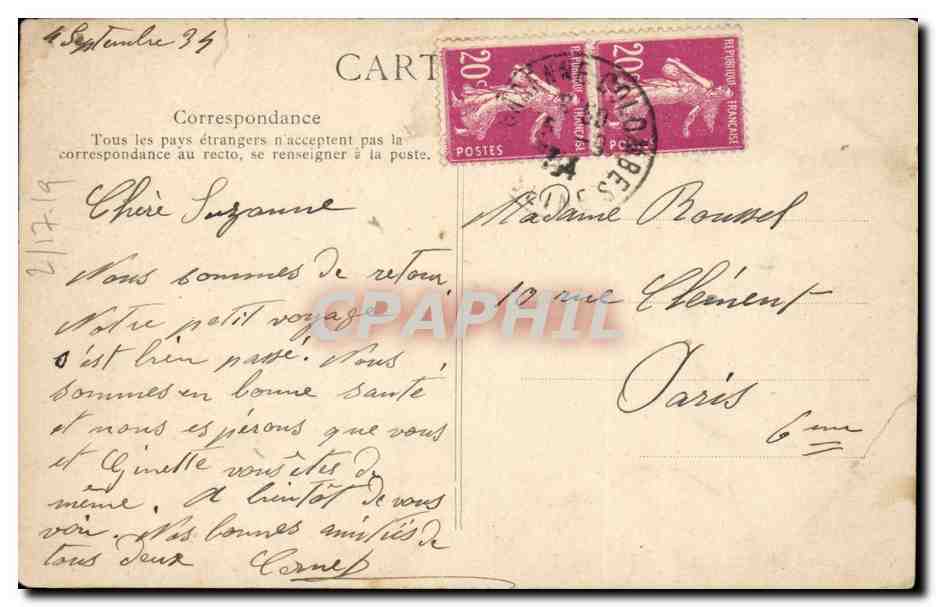 4 Septembre 34
CART
Correspondance
Tous les pays étrangers n'acceptent pas la
correspondance au recto, se renseigner à la poste.
20c
REPUBLIQUE FRANÇAISE
POSTES
20c
REPUBLIQUE FRANÇAISE
POSTES
GARENNE-COLOMBES
SEINE
2/17.19
Chère Suzanne
Nous sommes de retour,
Notre petit voyage
s'est bien passé. Nous
sommes en bonne santé
et nous espérons que vous
et Ginette vous êtes de
même. A bientôt de vous
voir. Nos bonnes amitiés de
tous deux
Madame Roussel
10 rue Clément
Paris
6eme
CPAPHIL